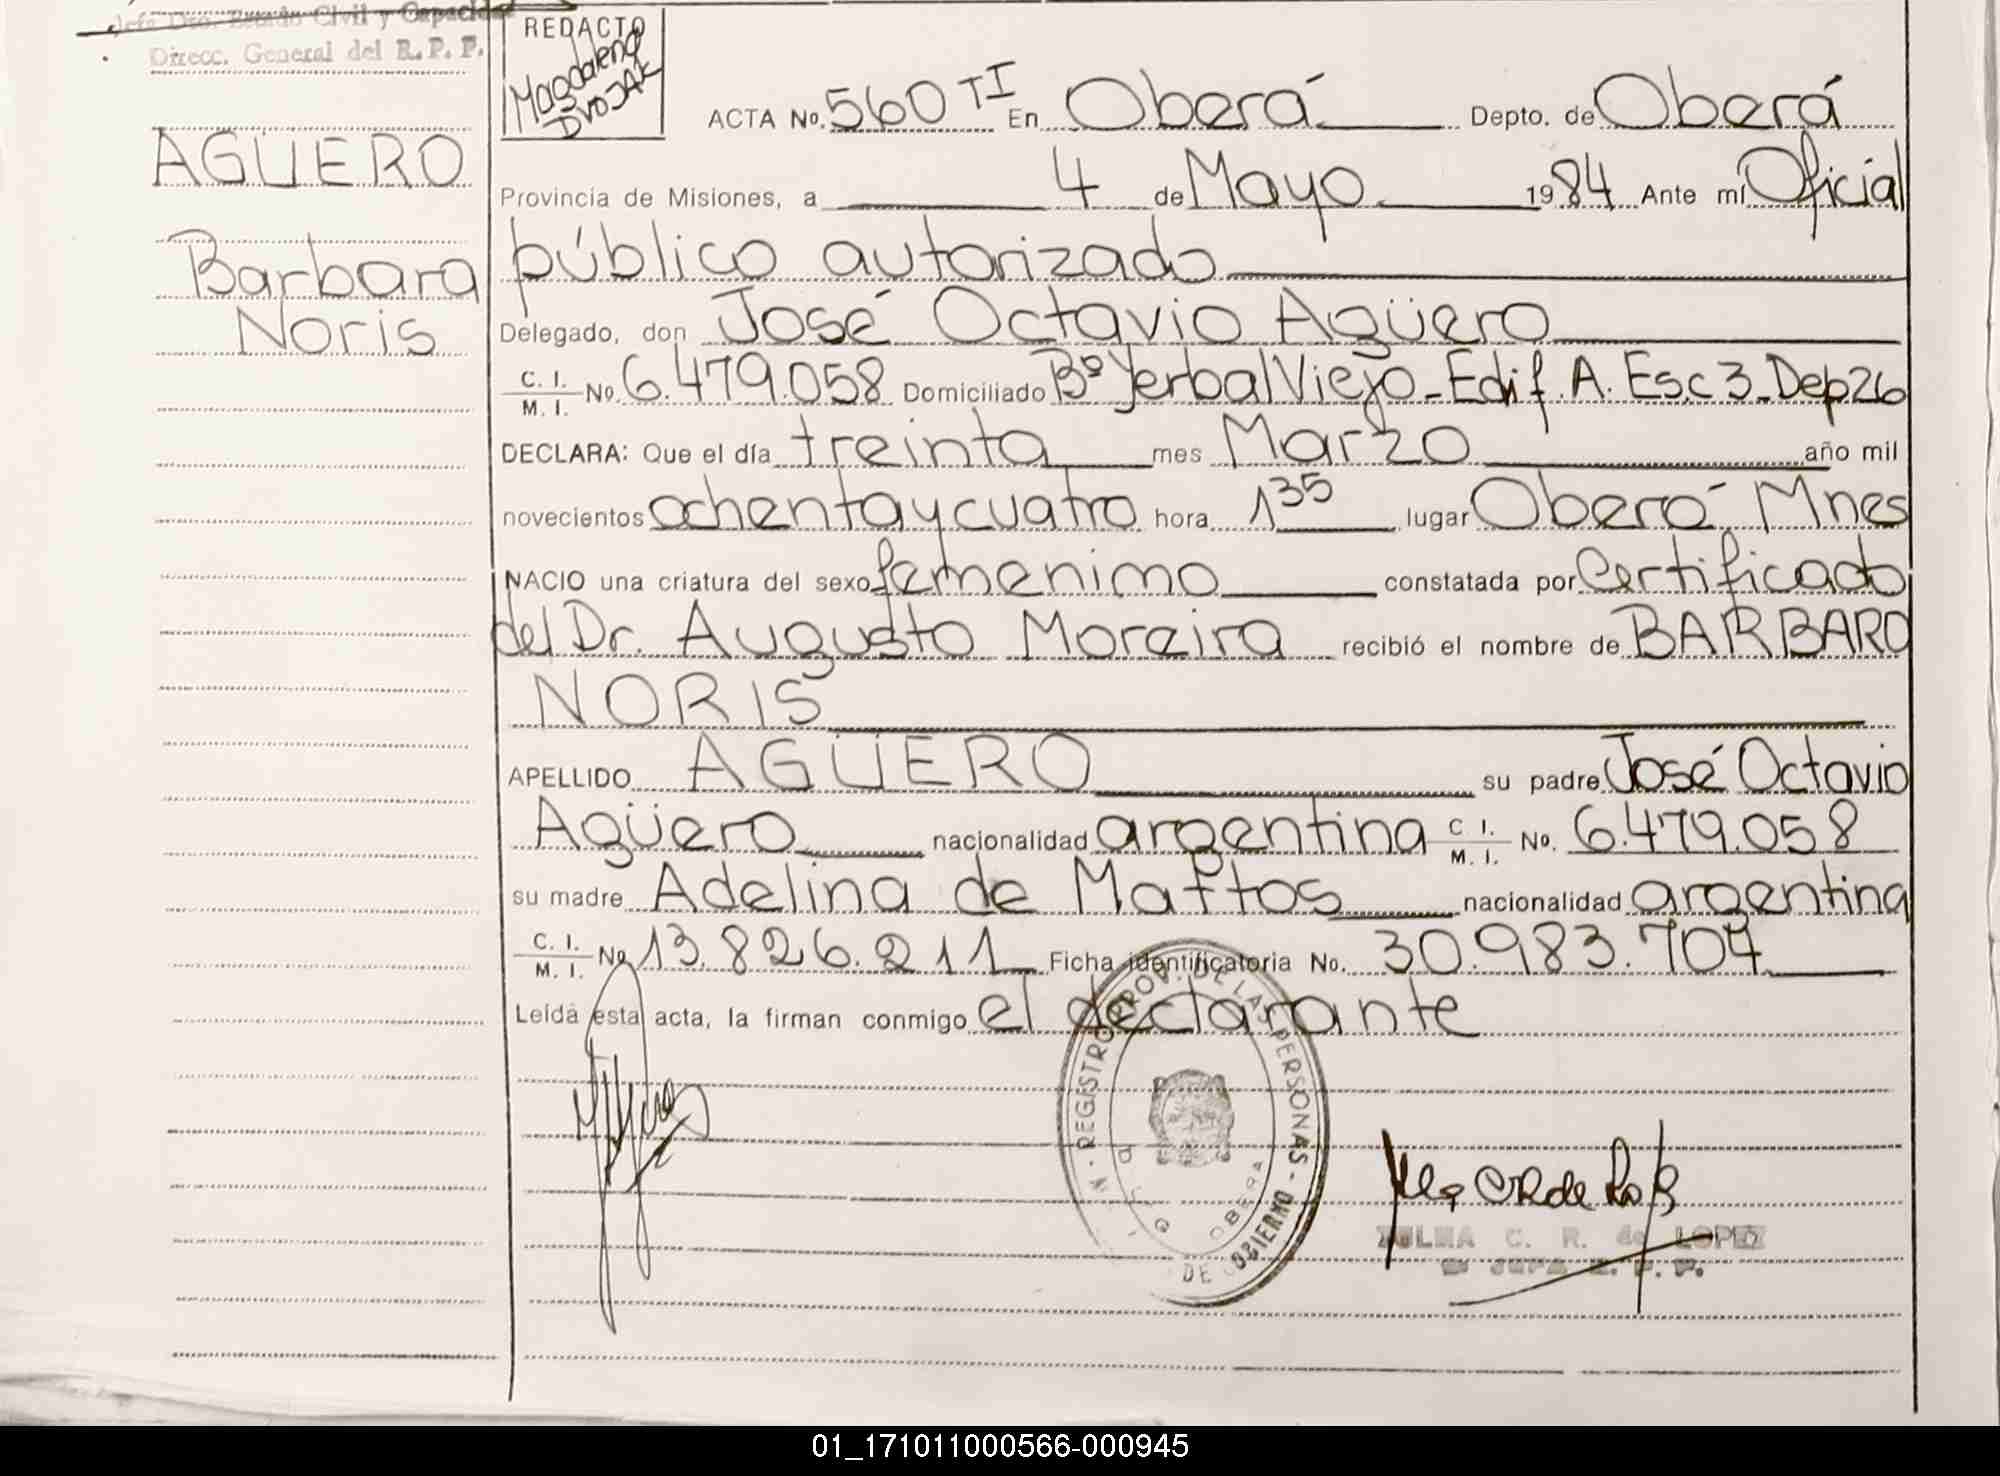 Jefa Dto. Estado Civil y Capacidad
Direcc. General del R. P. P.
AGÜERO
Barbara
Noris
REDACTO
Magdalena
DVOJAK
ACTA No. 560 TI En Oberá Depto. de Oberá
Provincia de Misiones, a 4 de Mayo 1984 Ante mí Oficial
público autorizado
Delegado, don José Octavio Agüero
C. I.
M. I. No. 6.479.058 Domiciliado Bº Yerbal Viejo - Edif. A. Esc 3 - Dep 26
DECLARA: Que el día treinta mes Marzo año mil
novecientos ochenta y cuatro hora 1 35 lugar Oberá Mnes
NACIO una criatura del sexo femenimo constatada por Certificado
del Dr. Augusto Moreira recibió el nombre de BARBARA
NORIS
APELLIDO AGÜERO su padre José Octavio
Agüero nacionalidad argentina C. I.
M. I. No. 6.479.058
su madre Adelina de Mattos nacionalidad argentina
C. I.
M. I. No 13.826.211 Ficha identificatoria No. 30.983.704
Leída esta acta, la firman conmigo el declarante
REGISTRO PROV. DE LAS PERSONAS -
DE GOBIERNO
OBERA
ZULMA C. R. de LOPEZ
JEFA R. P. P.
01_171011000566-000945